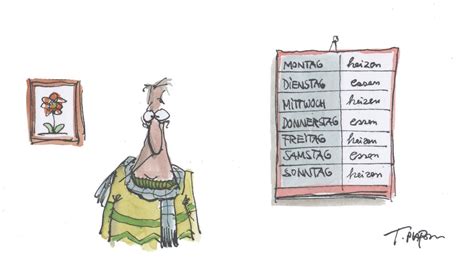 MONTAG heizen
DIENSTAG essen
MITTWOCH heizen
DONNERSTAG essen
FREITAG heizen
SAMSTAG essen
SONNTAG heizen